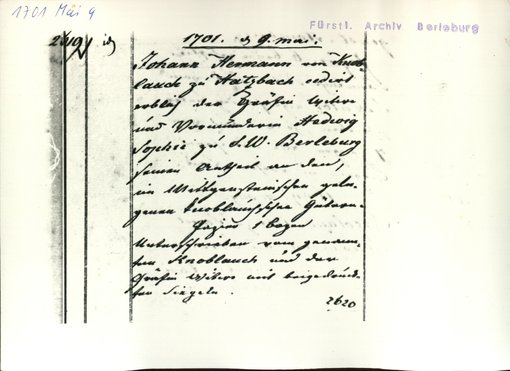 1701 Mai 9
Fürstl. Archiv Berleburg
1701. d 9. Mai.
Johann Hermann von Knob-
lauch zu Hatzbach cedirt
erblich der Gräfin Witwe
und Vormünderin Hedwig
Sophie zu S. W. Berleburg
seinen Antheil an den,
im Wittgensteinischen gele-
genen Knoblauchschen Gütern.
Papier 1 bogen
Unterschrieben vom genann-
ten Knoblauch und der
Gräfin Witwe mit beigedrück-
ten Siegeln.
2620